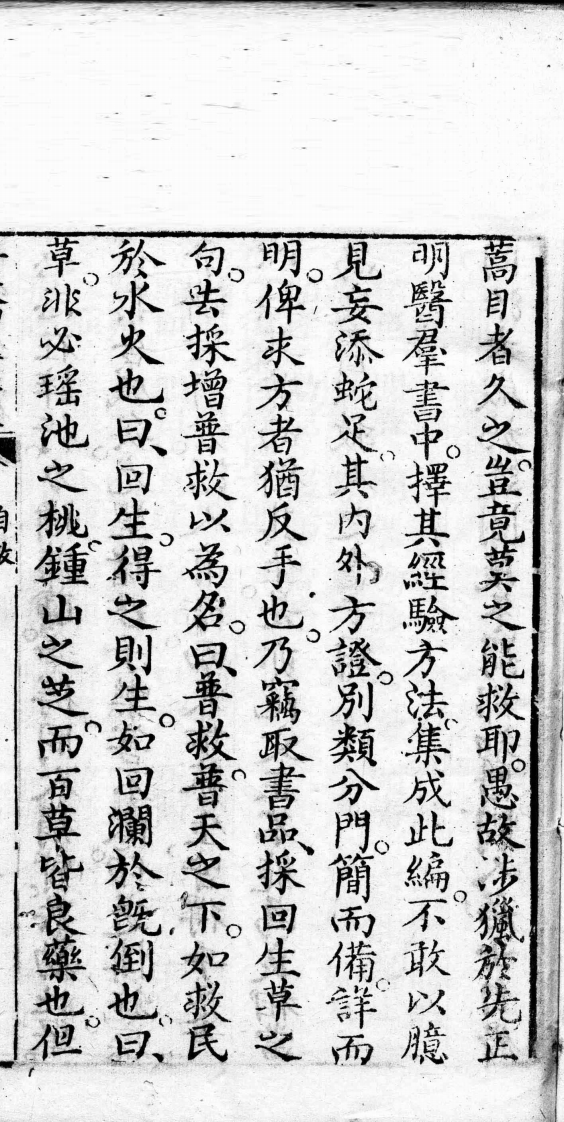 蒿目者久之。豈竟莫之能救耶。愚故涉獵於先正
明醫羣書中。擇其經驗方法。集成此編。不敢以臆
見妄添蛇足。其内外方證。別類分門。簡而備。詳而
明。俾求方者猶反手也。乃竊取書品、採回生草之
句。去採增普救以為名。曰、普救。普天之下。如救民
於水火也。曰、回生。得之則生。如回瀾於旣倒也。曰、
草。非必瑶池之桃。鍾山之芝。而百草皆良藥也。但